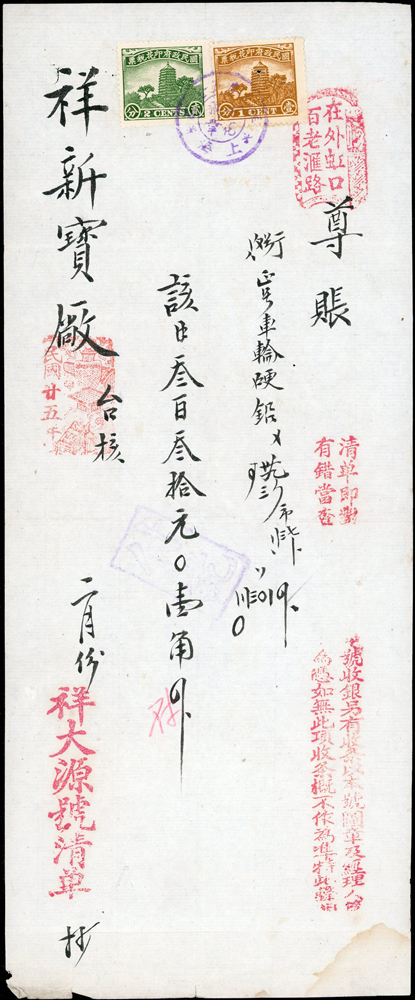 國民政府印花稅票
壹分
1 CENT
國民政府印花稅票
貳分
2 CENTS
在外虹口
百老滙路
尊賬
車輪硬鉛
該日叁百叁拾元〇壹角
清單即對
有錯當查
號收銀另有收條以本號圖章及經理人
為憑如無此項收条概不作為準特此
祥新寶廠
台核
民國廿五年
二月份
祥大源號清单
抄